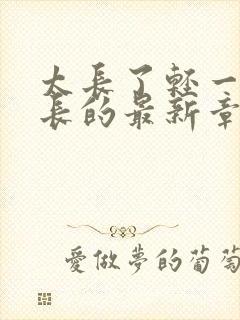 太長了輕一
長的最新章
愛做夢的葡萄